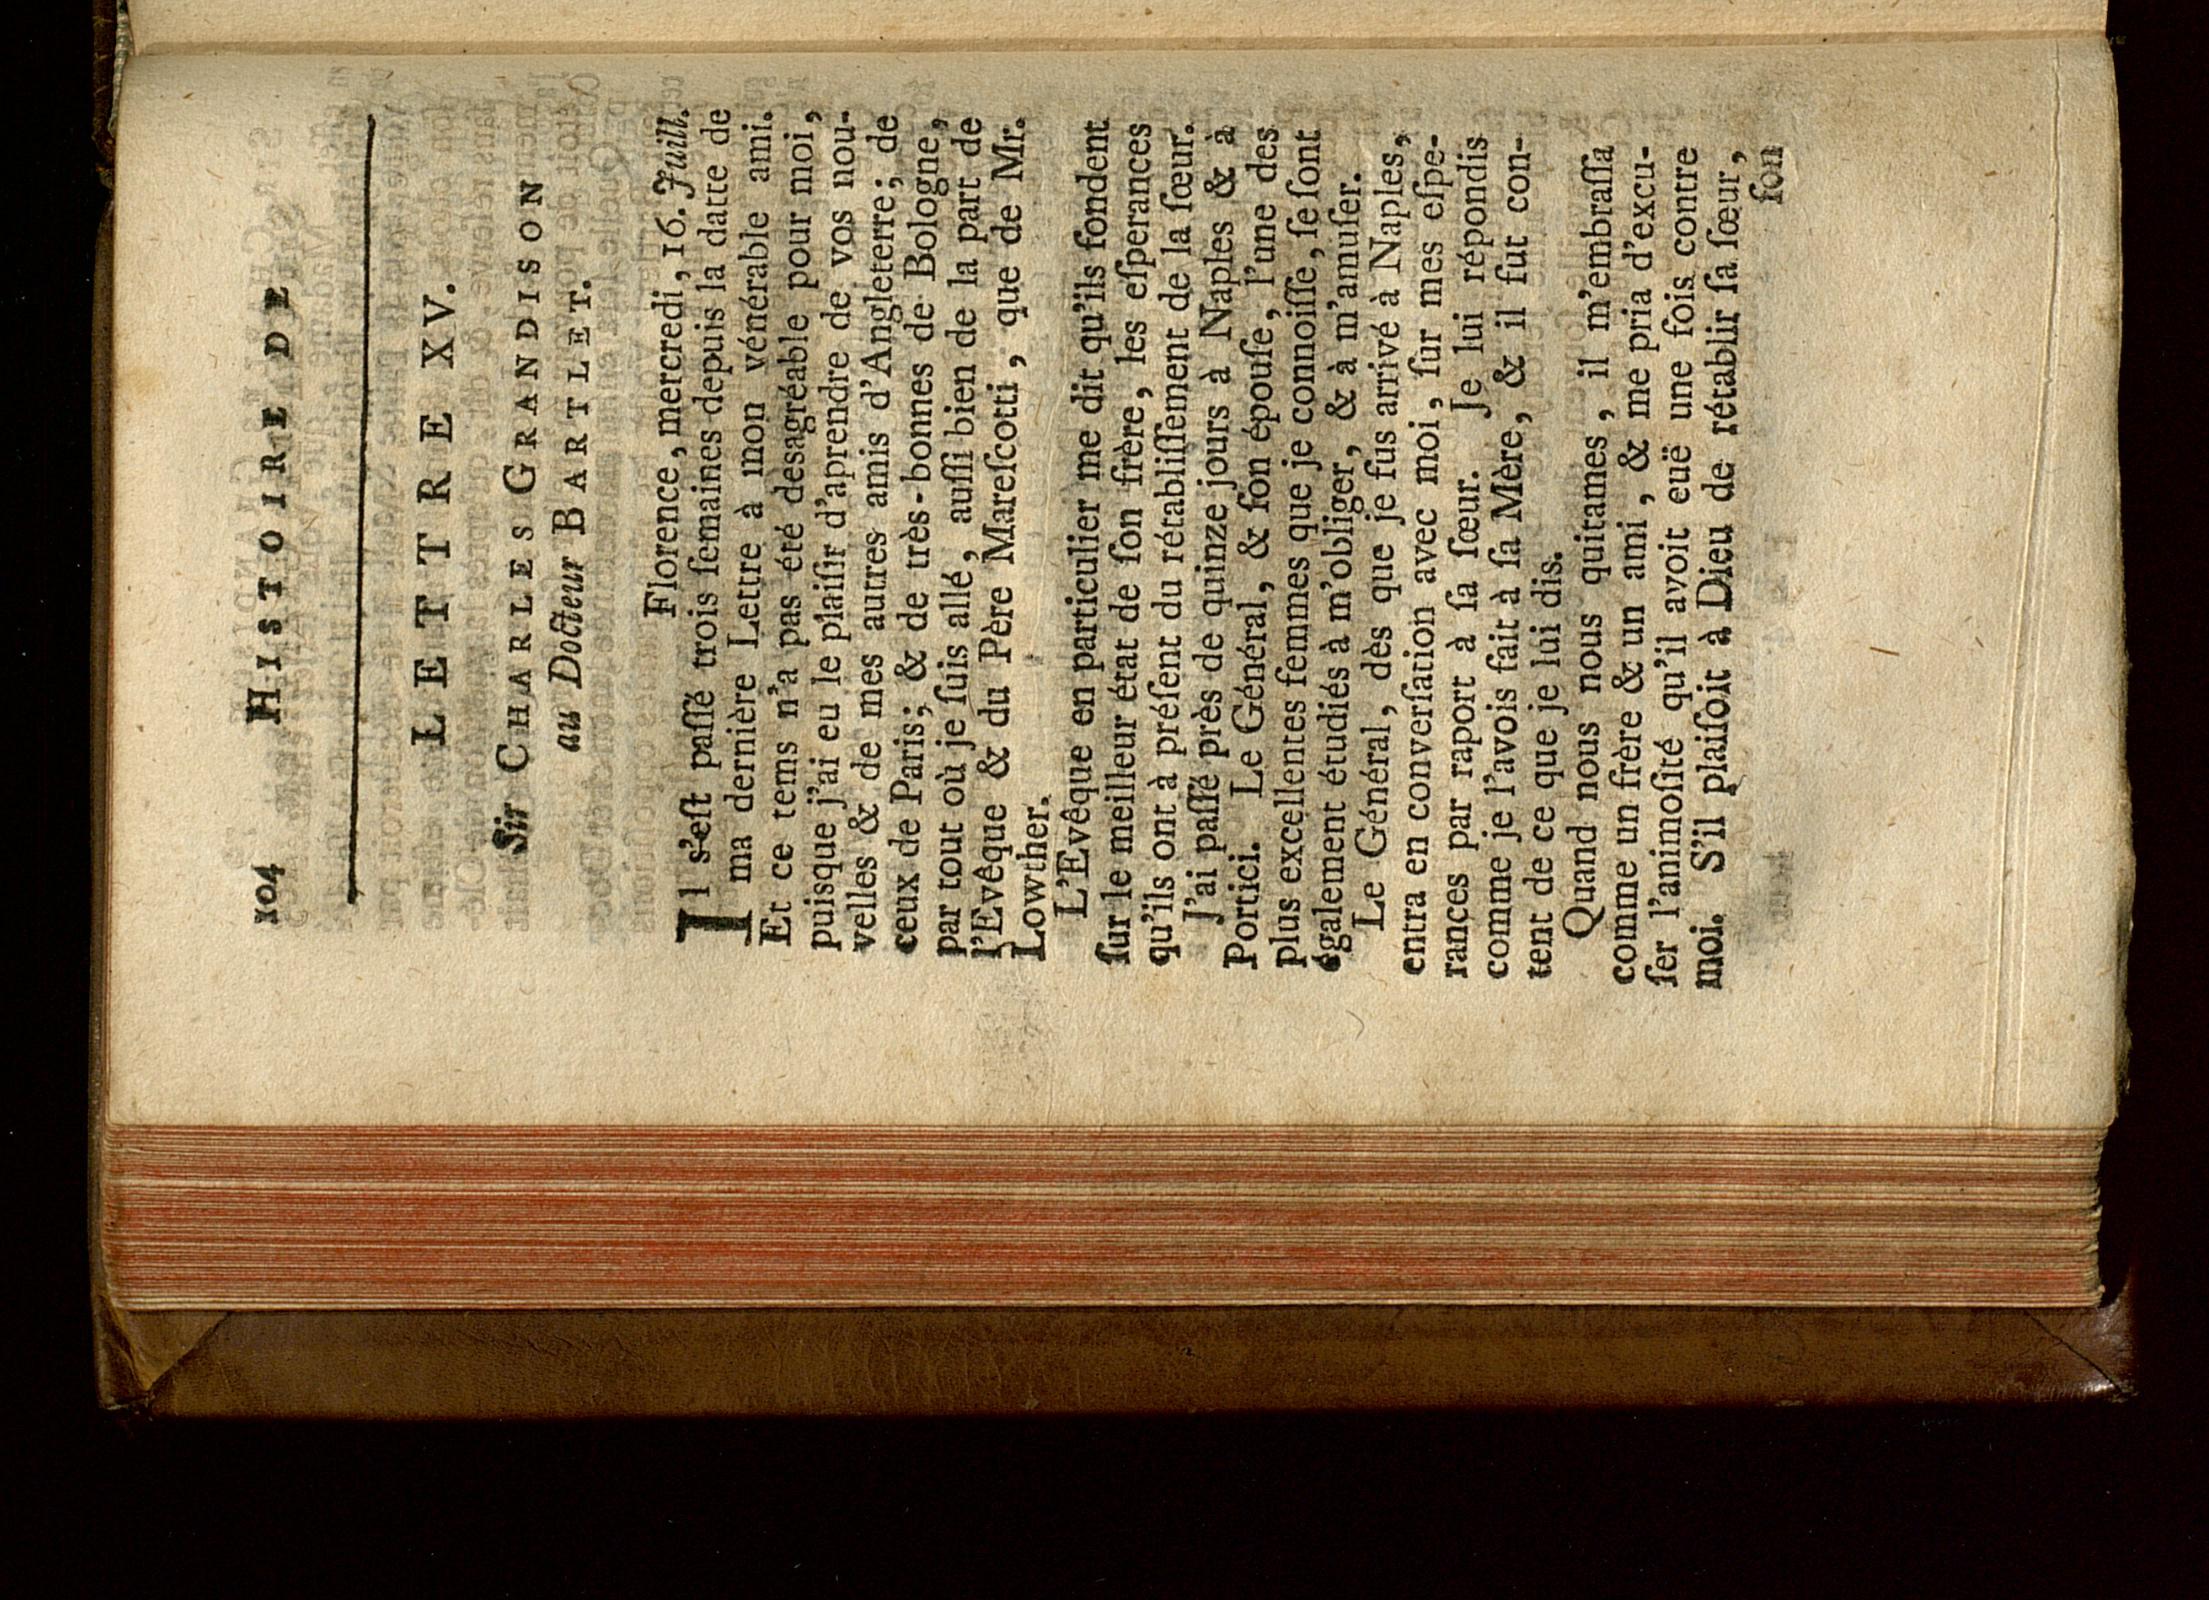 104 HISTOIRE DE
LETTRE XV.
Sir CHARLES GRANDISON
au Docteur BARTLET.
Florence, mercredi, 16. Juill.
Il s'eſt paſſé trois ſemaines depuis la datte de
ma dernière Lettre à mon vénérable ami.
Et ce tems n'a pas été désagréable pour moi,
puisque j'ai eu le plaiſir d'aprendre de vos nou-
velles & de mes autres amis d'Angleterre; de
ceux de Paris; & de très-bonnes de Bologne,
par tout où je ſuis allé, auſſi bien de la part de
l'Evêque & du Père Mareſcotti, que de Mr.
Lowther.
L'Evêque en particulier me dit qu'ils fondent
ſur le meilleur état de ſon frère, les eſperances
qu'ils ont à préſent du rétabliſſement de la ſœur.
J'ai paſſé près de quinze jours à Naples & à
Portici. Le Général, & ſon épouſe, l'une des
plus excellentes femmes que je connoiſſe, ſe ſont
également étudiés à m'obliger, & à m'amuſer.
Le Général, dès que je fus arrivé à Naples,
entra en converſation avec moi, ſur mes eſpe-
rances par raport à ſa ſœur. Je lui répondis
comme je l'avois fait à ſa Mère, & il fut con-
tent de ce que je lui dis.
Quand nous nous quitames, il m'embraſſa
comme un frère & un ami, & me pria d'excu-
ſer l'animoſité qu'il avoit euë une fois contre
moi. S'il plaiſoit à Dieu de rétablir ſa ſœur,
ſon